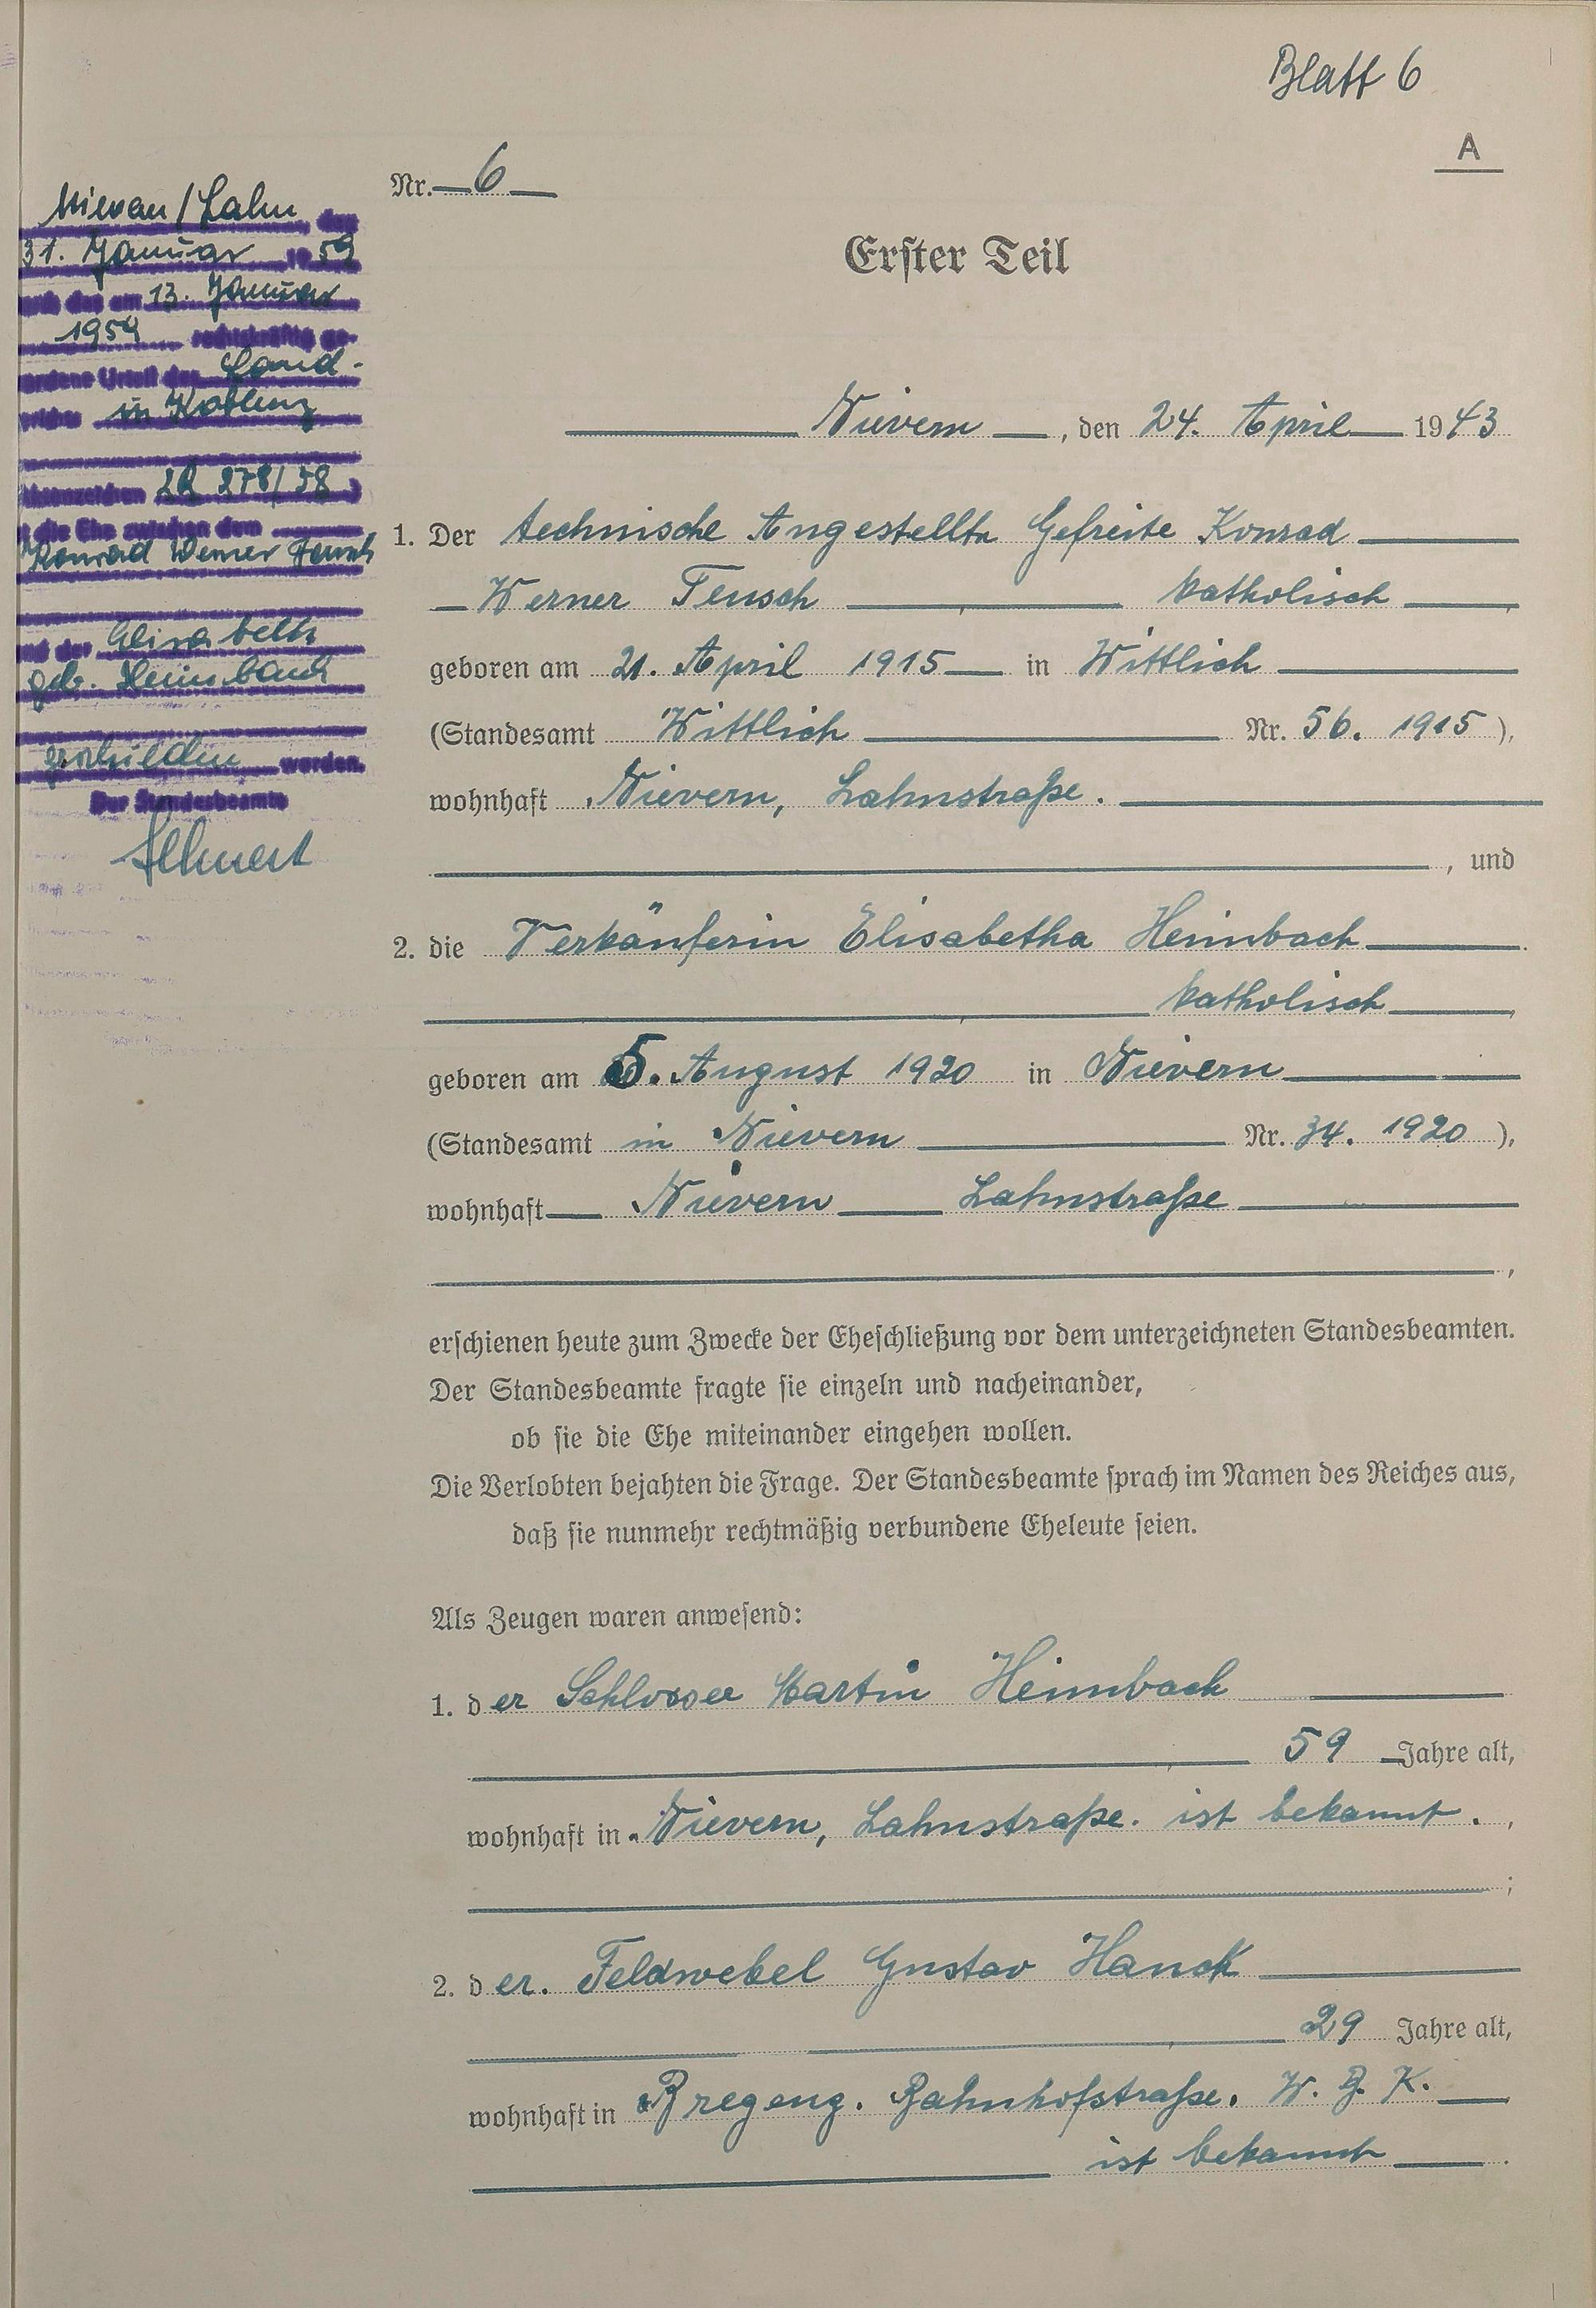 Blatt 6
A
Nr. 6
Erster Teil
Nievern, den 24. April 1943
1. Der technische Angestellte Gefreite Konrad
Werner Teusch katholisch,
geboren am 21. April 1915 in Wittlich
(Standesamt Wittlich Nr. 56. 1915),
wohnhaft Nievern, Lahnstraße.
, und
2. die Verkäuferin Elisabetha Heimbach
katholisch,
geboren am 5. August 1920 in Nievern
(Standesamt in Nievern Nr. 34. 1920),
wohnhaft Nievern Lahnstraße
,
erschienen heute zum Zwecke der Eheschließung vor dem unterzeichneten Standesbeamten.
Der Standesbeamte fragte sie einzeln und nacheinander,
ob sie die Ehe miteinander eingehen wollen.
Die Verlobten bejahten die Frage. Der Standesbeamte sprach im Namen des Reiches aus,
daß sie nunmehr rechtmäßig verbundene Eheleute seien.
Als Zeugen waren anwesend:
1. der Schlosser Martin Heimbach
59 Jahre alt,
wohnhaft in Nievern, Lahnstraße. ist bekannt.,
;
2. der. Feldwebel Gustav Hanck
29 Jahre alt,
wohnhaft in Bregenz. Bahnhofstraße. W. B. K.
ist bekannt.
Nievern/Lahn, den
31. Januar 1959
das am 13. Januar
1959 rechtskräftig ge-
Urteil des Land-
in Koblenz
2R 278/58)
die Ehe zwischen dem
Konrad Werner Teusch
der Elisabeth
geb. Heimbach
geschieden worden.
Der Standesbeamte